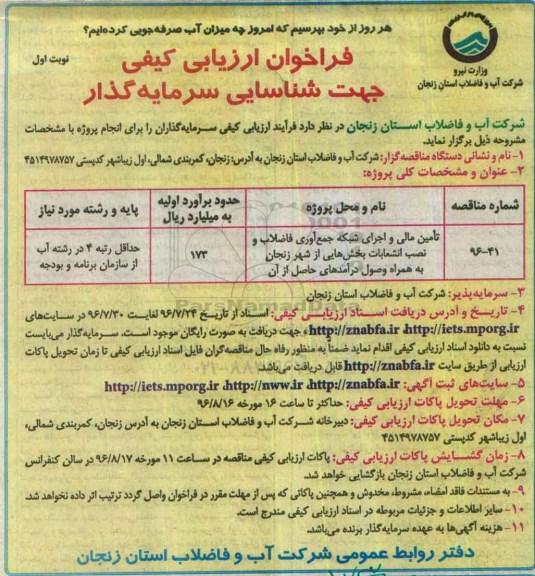 هر روز از خود بپرسیم که امروز چه میزان آب صرفه‌جویی کرده‌ایم؟
نوبت اول
فراخوان ارزیابی کیفی
جهت شناسایی سرمایه‌گذار
وزارت نیرو
شرکت آب و فاضلاب استان زنجان
شرکت آب و فاضلاب استان زنجان در نظر دارد فرآیند ارزیابی کیفی سرمایه‌گذاران را برای انجام پروژه با مشخصات
مشروحه ذیل برگزار نماید.
۱- نام و نشانی دستگاه مناقصه‌گزار: شرکت آب و فاضلاب استان زنجان به آدرس: زنجان، کمربندی شمالی، اول زیباشهر کدپستی ۴۵۱۴۹۷۸۷۵۷
۲- عنوان و مشخصات کلی پروژه:
شماره مناقصه | نام و محل پروژه | حدود برآورد اولیه به میلیارد ریال | پایه و رشته مورد نیاز
۹۶-۴۱ | تأمین مالی و اجرای شبکه جمع‌آوری فاضلاب و نصب انشعابات بخش‌هایی از شهر زنجان به همراه وصول درآمدهای حاصل از آن | ۱۷۳ | حداقل رتبه ۴ در رشته آب از سازمان برنامه و بودجه
۳- سرمایه‌پذیر: شرکت آب و فاضلاب استان زنجان
۴- تاریخ و آدرس دریافت اسناد ارزیابی کیفی: اسناد از تاریخ ۹۶/۷/۲۴ لغایت ۹۶/۷/۳۰ در سایت‌های
http://iets.mporg.ir، http://znabfa.ir جهت دریافت به صورت رایگان موجود است. سرمایه‌گذار می‌بایست
نسبت به دانلود اسناد ارزیابی کیفی اقدام نماید ضمناً به منظور رفاه حال مناقصه‌گران فایل اسناد ارزیابی کیفی تا زمان تحویل پاکات
ارزیابی از طریق سایت http://znabfa.ir قابل دریافت می‌باشد.
۵- سایت‌های ثبت آگهی: http://znabfa.ir، http://nww.ir، http://iets.mporg.ir
۶- مهلت تحویل پاکات ارزیابی کیفی: حداکثر تا ساعت ۱۶ مورخه ۹۶/۸/۱۶
۷- مکان تحویل پاکات ارزیابی کیفی: دبیرخانه شرکت آب و فاضلاب استان زنجان به آدرس زنجان، کمربندی شمالی،
اول زیباشهر کدپستی ۴۵۱۴۹۷۸۷۵۷
۸- زمان گشایش پاکات ارزیابی کیفی: پاکات ارزیابی کیفی مناقصه در ساعت ۱۱ مورخه ۹۶/۸/۱۷ در سالن کنفرانس
شرکت آب و فاضلاب استان زنجان بازگشایی خواهد شد.
۹- به مستندات فاقد امضاء، مشروط، مخدوش و همچنین پاکاتی که پس از مهلت مقرر در فراخوان واصل گردد ترتیب اثر داده نخواهد شد.
۱۰- سایر اطلاعات و جزئیات مربوطه در اسناد ارزیابی کیفی مندرج است.
۱۱- هزینه آگهی‌ها به عهده سرمایه‌گذار برنده می‌باشد.
دفتر روابط عمومی شرکت آب و فاضلاب استان زنجان